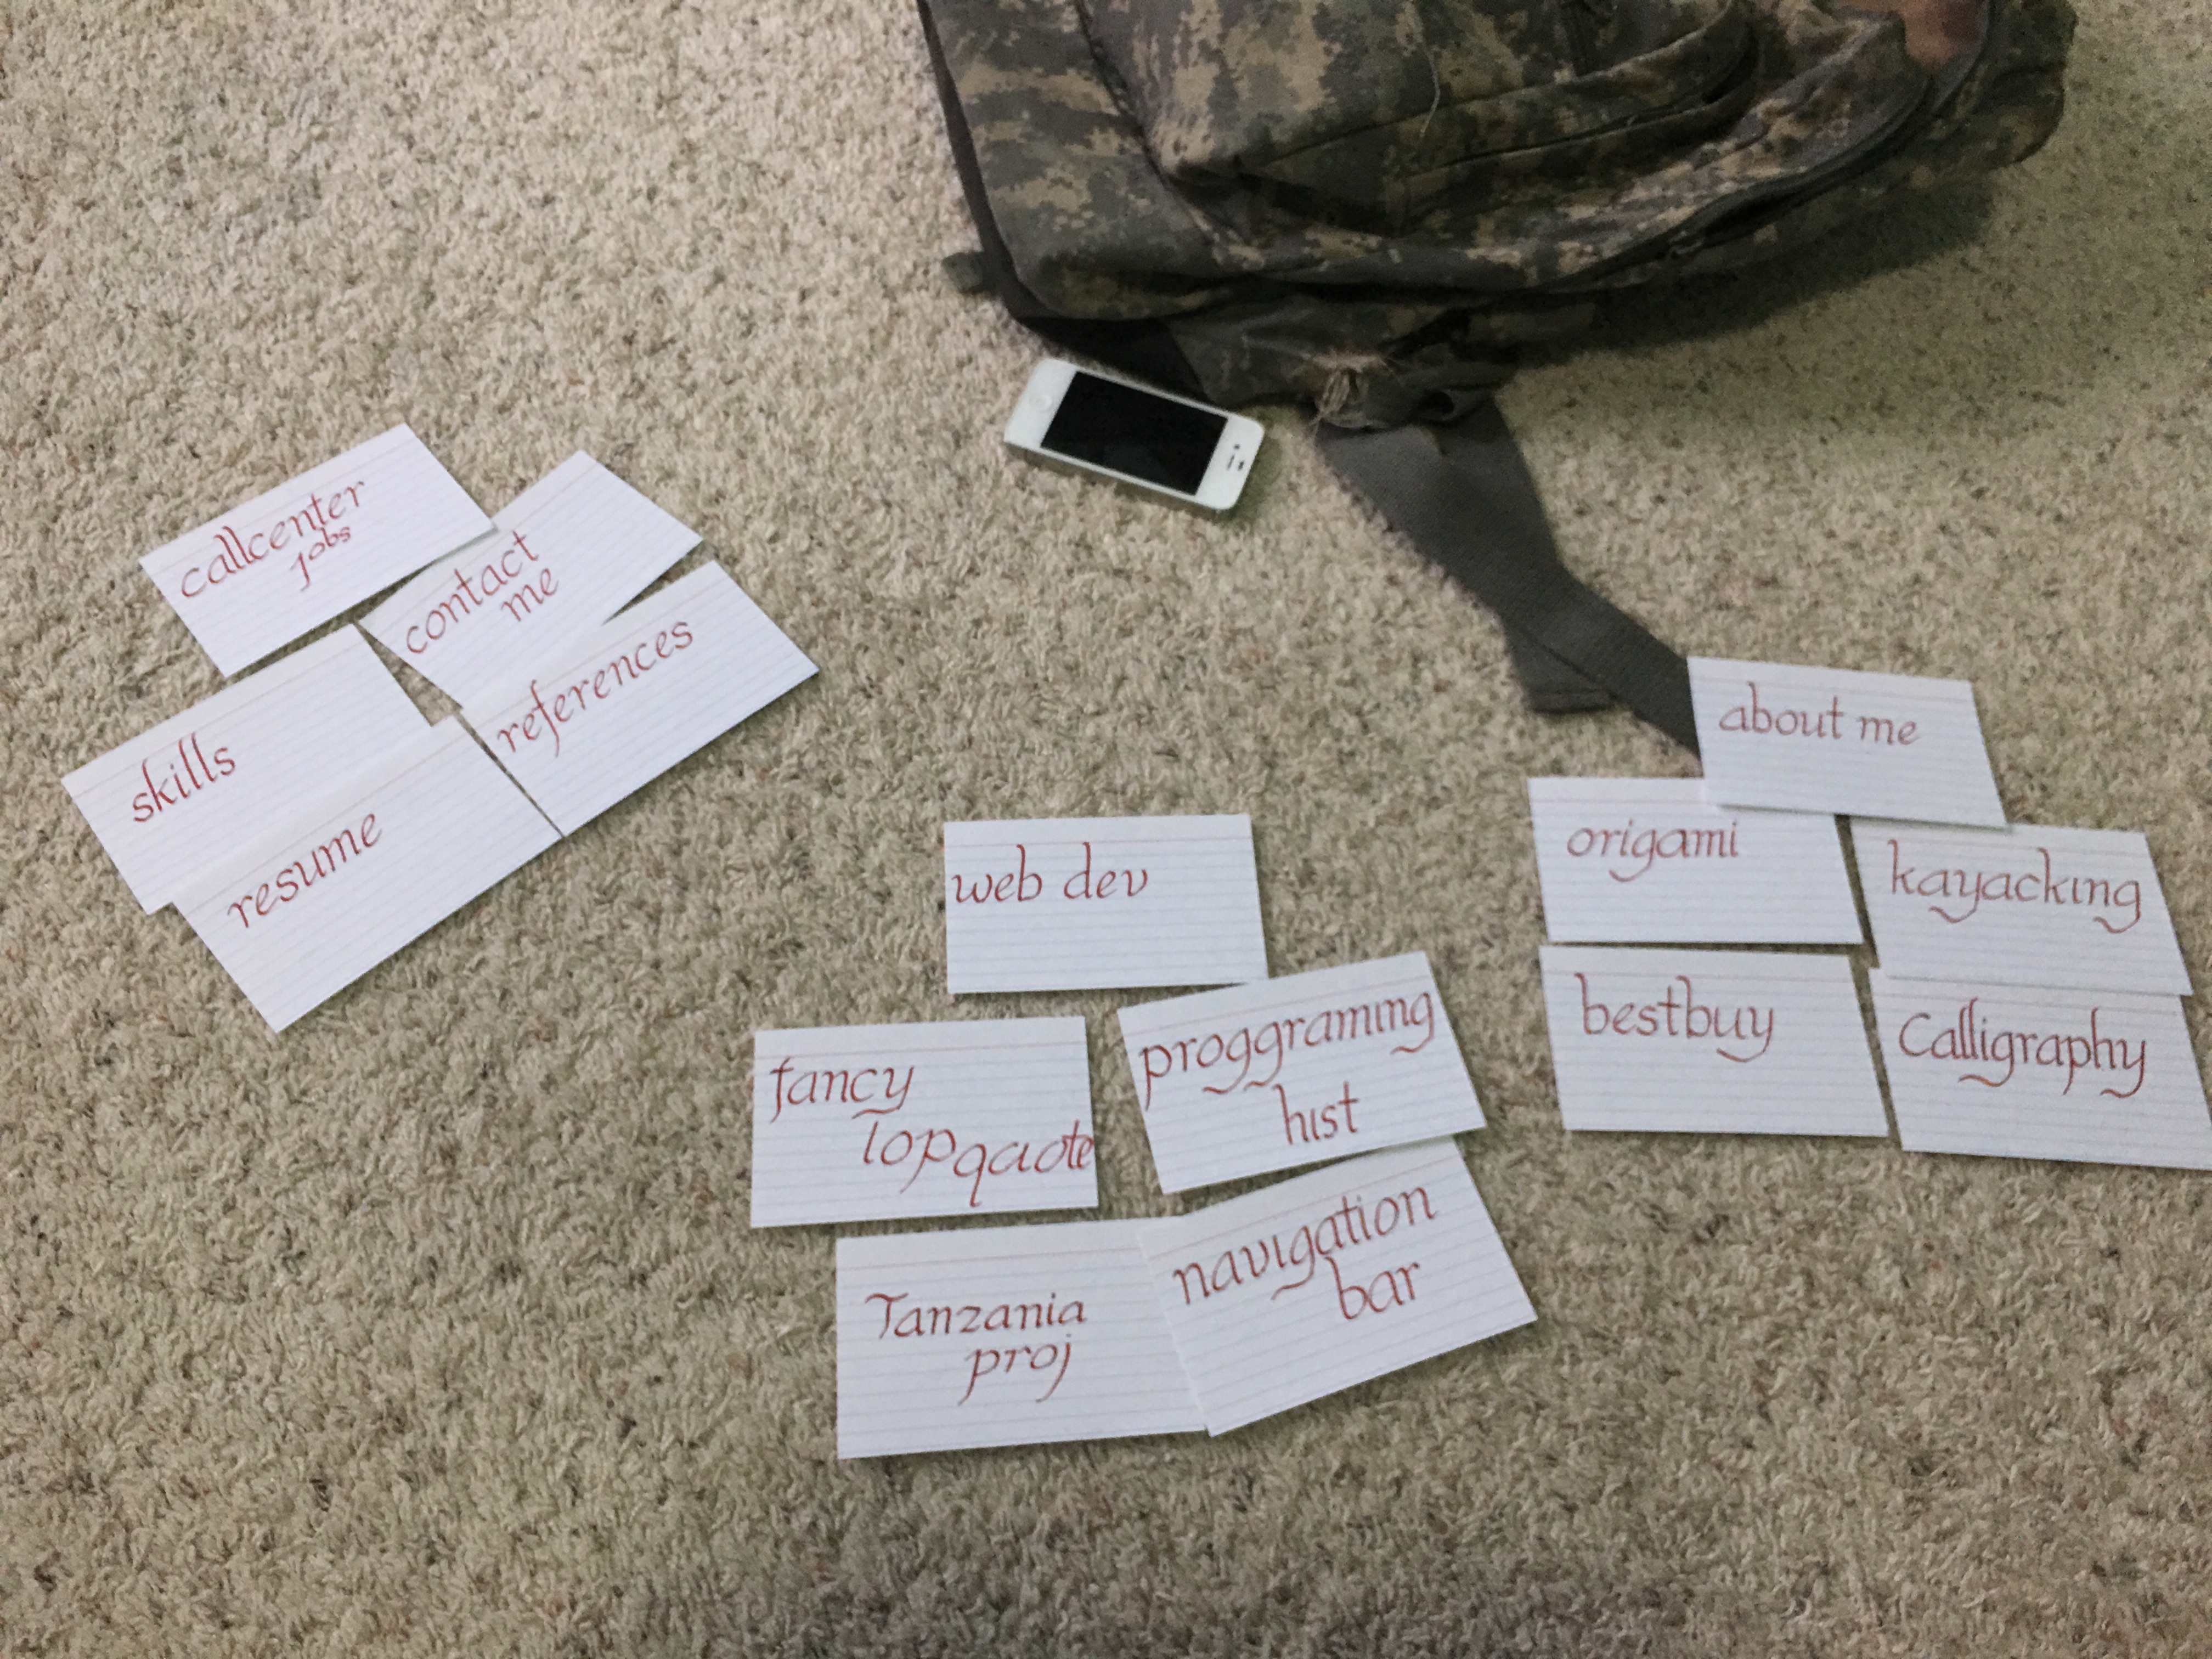 callcenter
jobs
contact
me
references
skills
resume
web dev
fancy
lopquote
proggraming
hist
Tanzania
proj
navigation
bar
about me
origami
kayacking
bestbuy
Calligraphy